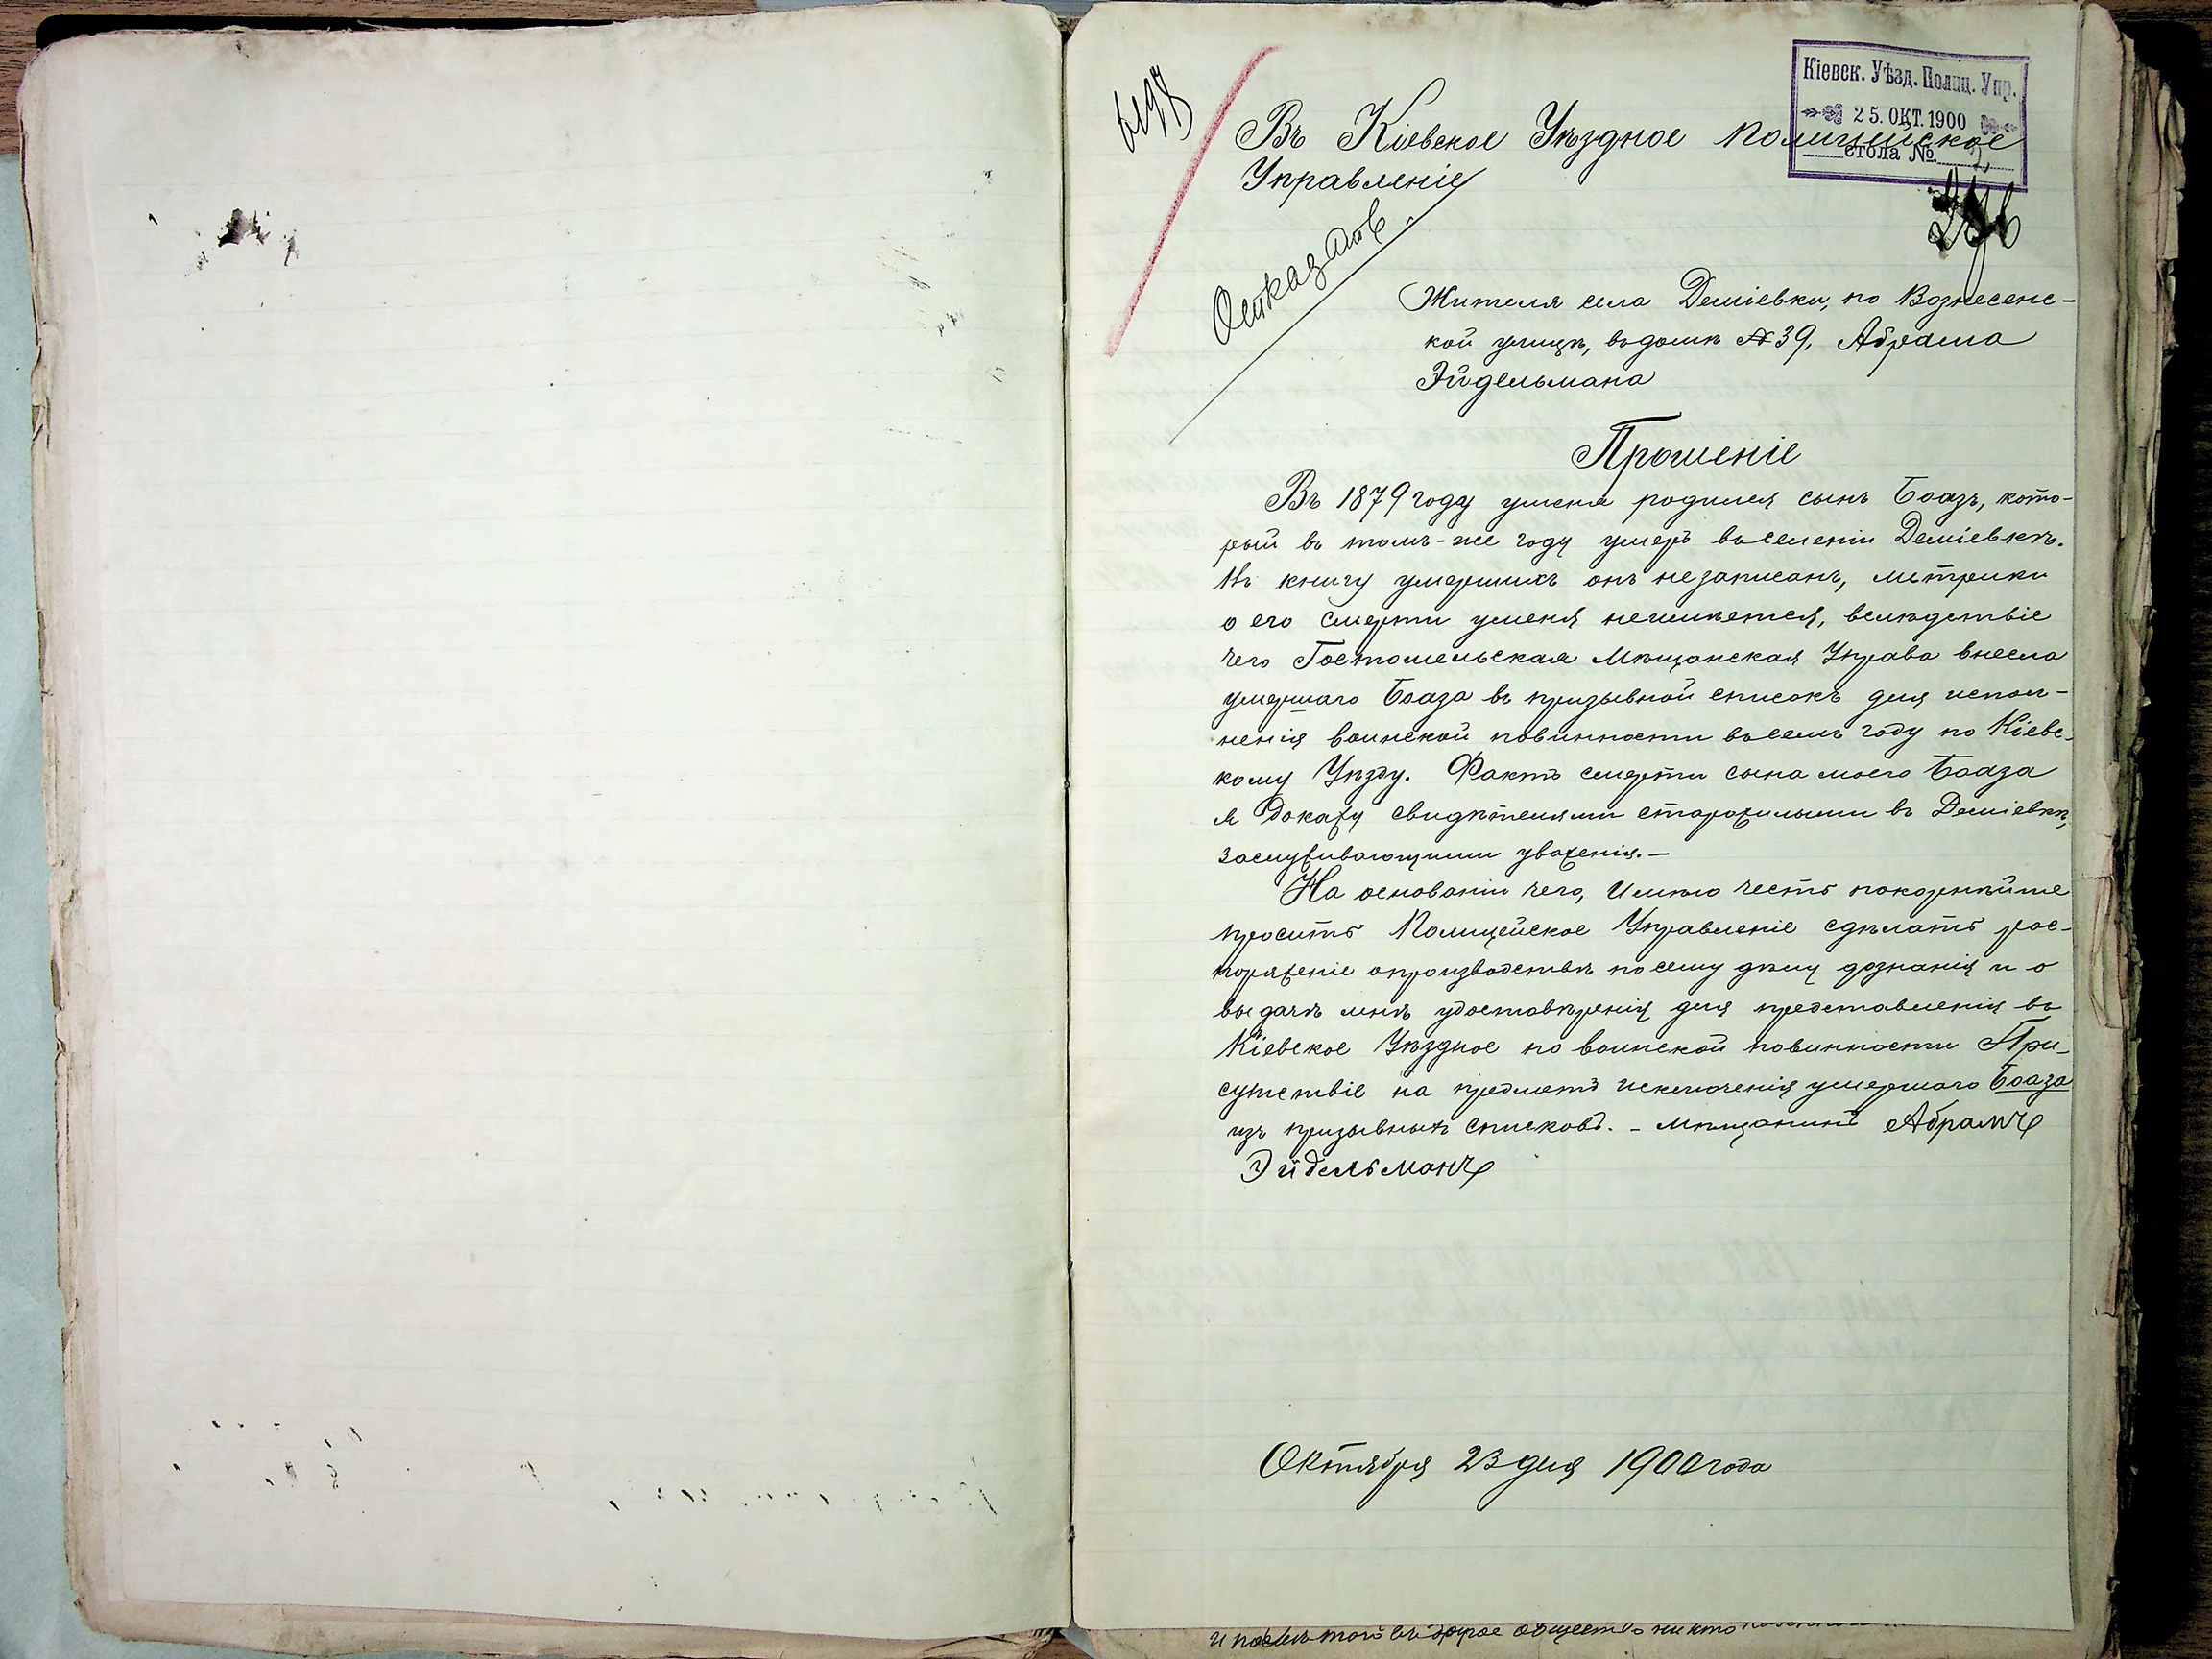 Кіевск. Уѣзд. Полиц. Упр.
25. ОКТ. 1900
стола №
Въ Кіевское Уѣздное Полицейское
Управленіе
Отказать.
Жителя села Деміевки, по Вознесенс-
кой улицѣ, въ домѣ № 39, Абрама
Эйдельмана
Прошеніе
Въ 1879 году уменя родился сынъ Боазъ, кото-
рый въ томъ-же году умеръ въ селеніи Деміевкѣ.
Въ книгу умершихъ онъ незаписанъ, метрики
о его смерти уменя неимѣется, вслѣдствіе
чего Гостомельская Мѣщанская Управа внесла
умершаго Боаза въ призывной списокъ для испол-
ненія воинской повинности въ семъ году по Кіевс-
кому Уѣзду. Фактъ смерти сына моего Боаза
я докажу свидѣтелями старожилыми въ Деміевкѣ,
заслуживающими уваженія.—
На основаніи чего, Имѣю честь покорнѣйше
просить Полицейское Управленіе сдѣлать рас-
поряженіе опроизводствѣ по сему дѣлу дознанія и о
выдачѣ мнѣ удостовѣренія для представленія въ
Кіевское Уѣздное по воинской повинности При-
сутствіе на предметъ исключенія умершаго Боаза
изъ призывныхъ списковъ. - Мѣщанинъ Абрамъ
Эйдельманъ
Октября 23 дня 1900 года
и послѣ того въ другое общество никто